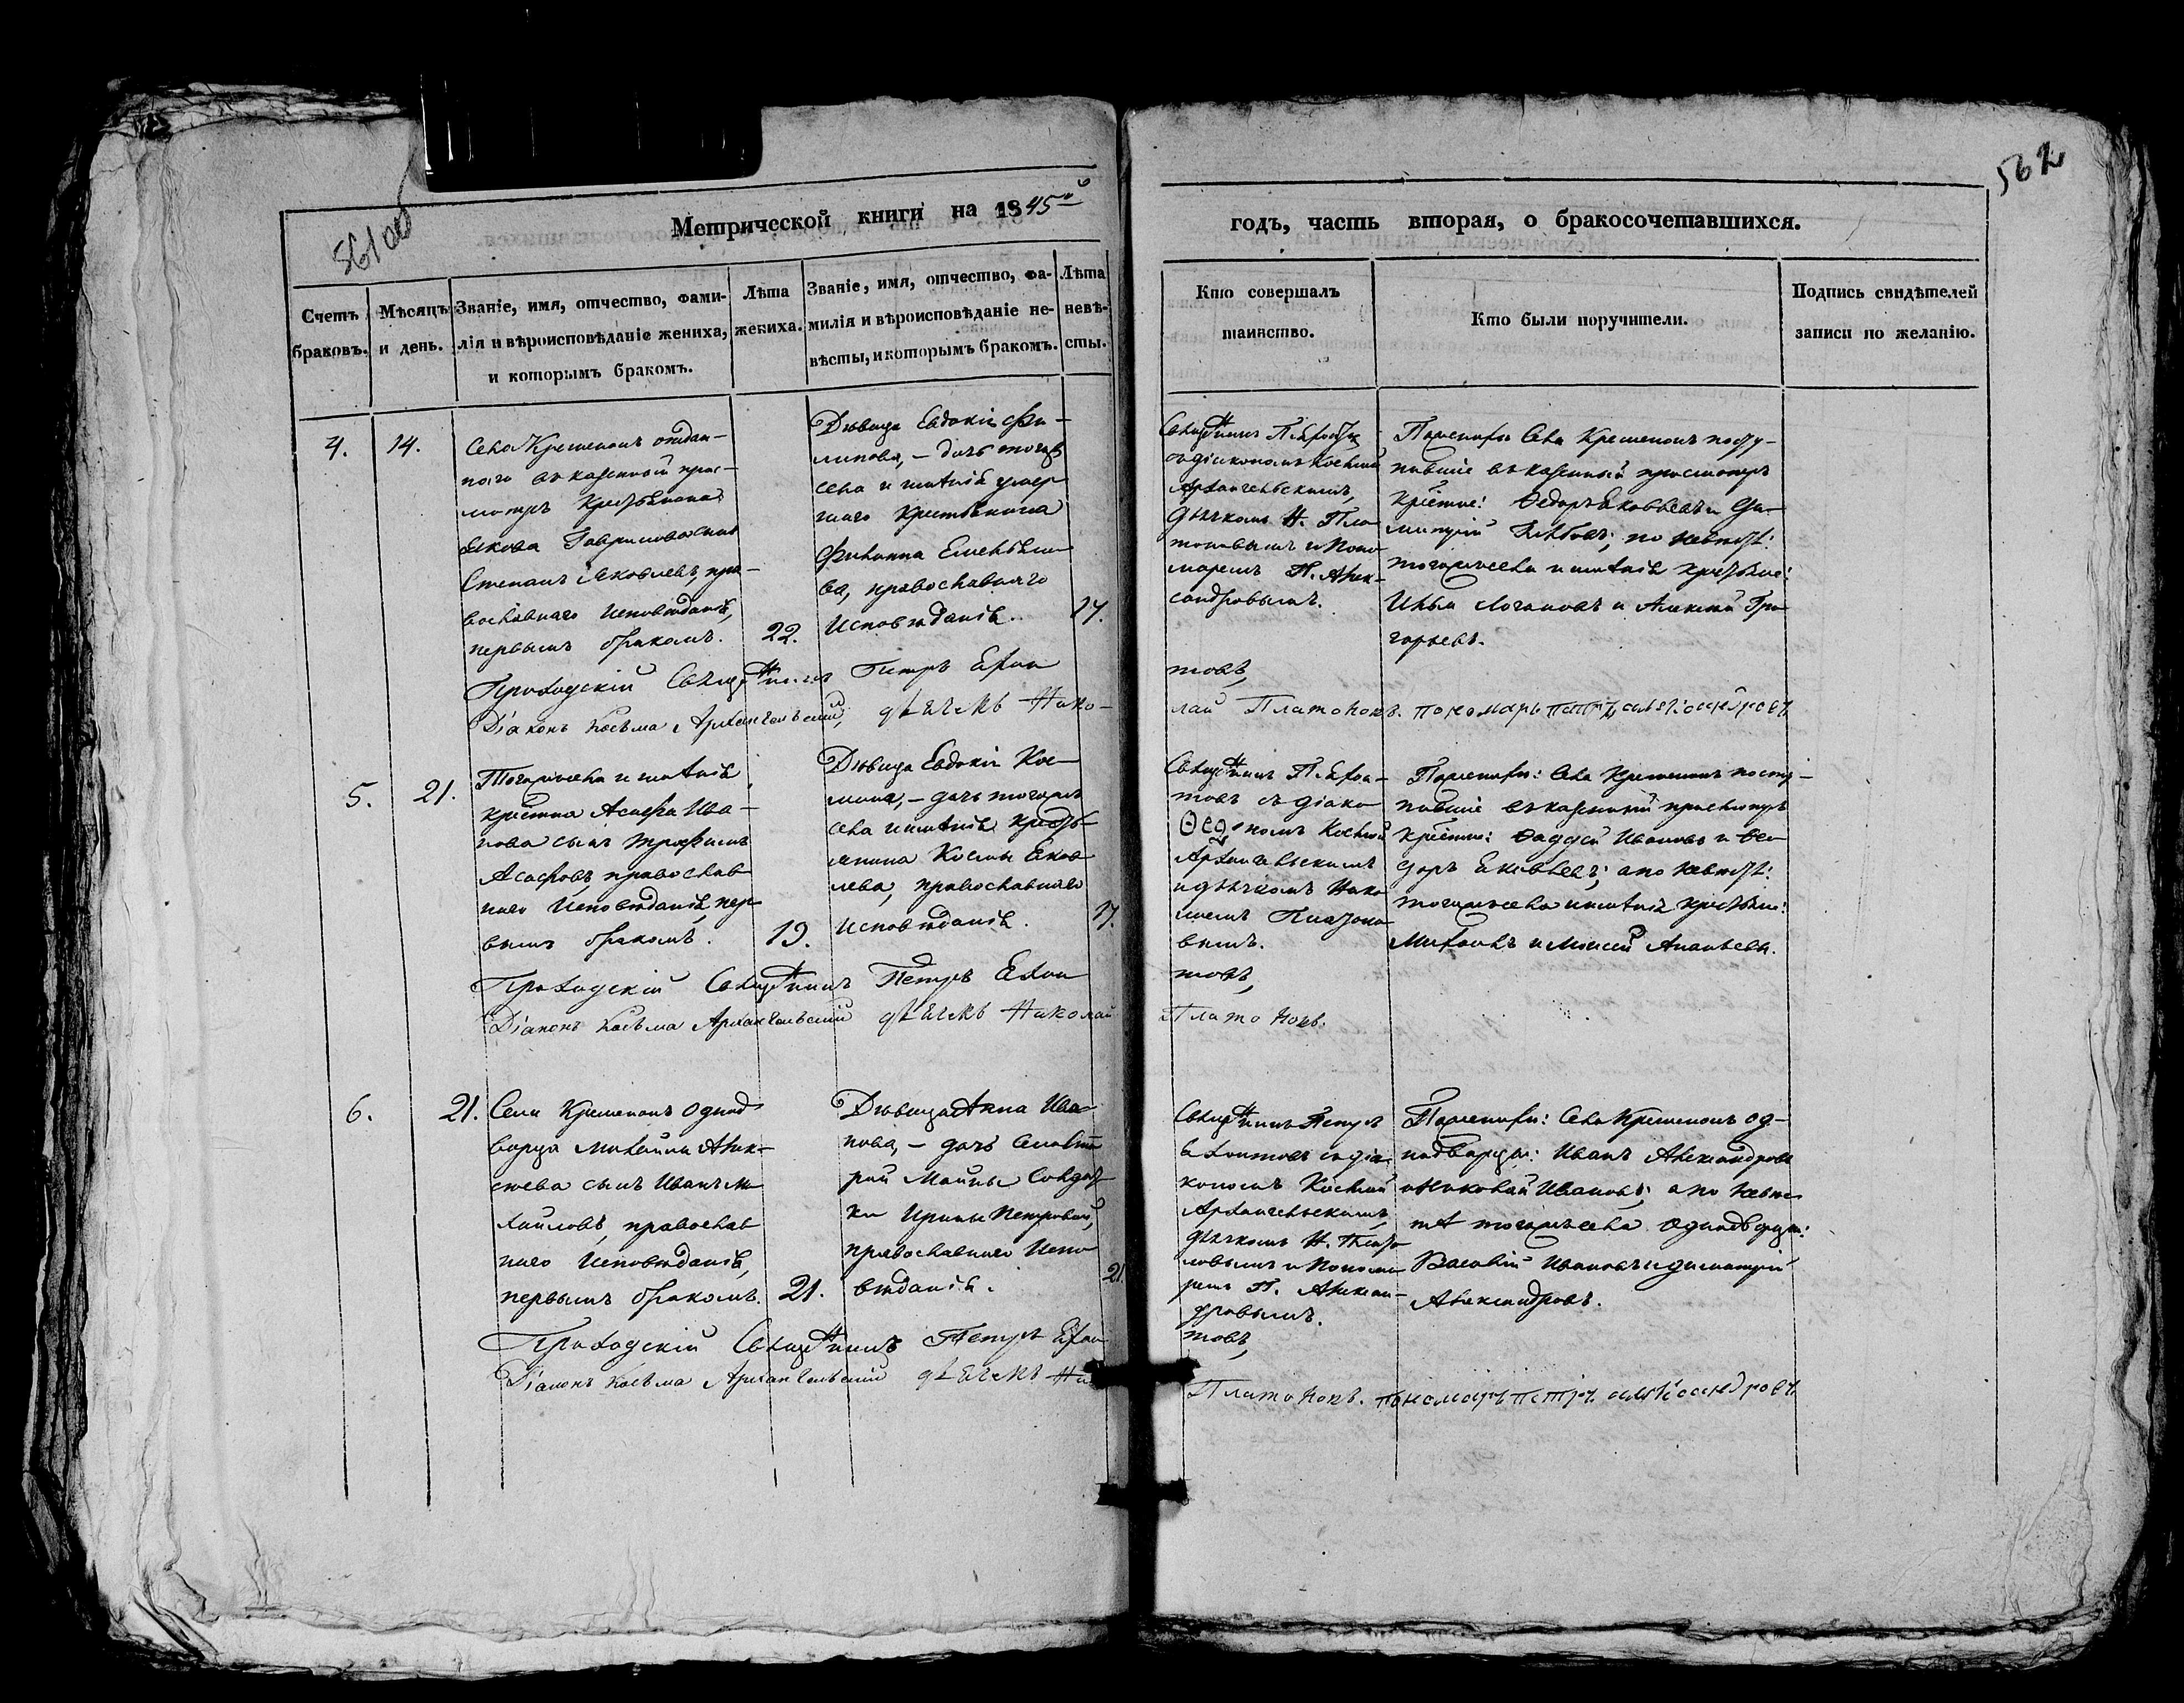 561 об
562
Метрической книги на 1845й
годъ, часть вторая, о бракосочетавшихся.
Счетъ браковъ.
Мѣсяцъ и день.
Званіе, имя, отчество, фами-
лія и вѣроисповѣданіе жениха,
и которымъ бракомъ.
Лѣта
жениха.
Званіе, имя, отчество, фа-
милія и вѣроисповѣданіе не-
вѣсты, и которымъ бракомъ.
Лѣта
невѣ-
сты.
Кто совершалъ
таинство.
Кто были поручители.
Подпись свидѣтелей
записи по желанію.
4.
14.
Села Кременокъ отдан-
наго въ казенный прис-
мотръ Крестьянина
Якова Гаврилова сынъ
Степанъ Яковлевъ, пра-
вославнаго Исповѣданія,
первымъ бракомъ.
22.
Дѣвица Евдокія Фи-
липова, – дочь тогожъ
села и имѣнія умер
шаго Крестьянина
Филиппа Емельяно
ва, православнаго
Исповѣданія.
17.
Священникъ Петръ
съ діакономъ Космою
Архангельскимъ,
дьячкомъ Н. Пла
тоновымъ и Поно
маремъ П. Алек-
сандровымъ.
Села Кременокъ посту-
пившіе въ казенный присмотръ
Ѳедоръ Яковлевъ и Ди-
митрій Глѣбовъ; по невѣстѣ:
тогожъ села и имѣнія
Илья Логиновъ и Алексѣй Гри
горьевъ.
Приходскій Священникъ Петръ Ехлаи
товъ,
Діаконъ Косьма Архангельскій, дьячекъ Нико-
лай Платоновъ. пономарь петръ александровъ
5.
21.
Тогожъ села и имѣнія
Асафа Ива-
нова сынъ Трофимъ
Асафовъ, православ
наго Исповѣданія, пер
вымъ бракомъ.
19.
Дѣвица Евдокія Кос-
мина, – дочь тогожъ
села и имѣнія Кресть-
янина Космы Яков
лева, православнаго
Исповѣданія.
17.
товъ съ діако
номъ Космою
Архангельскимъ
и дьячкомъ Нико
лаемъ Платоно
вымъ.
Села Кременокъ посту-
пившіе въ казенный присмотръ
Ѳаддей Ивановъ и Ѳео
доръ Яковлевъ; а по невѣстѣ:
тогожъ села и имѣнія
и Моисей Ананьевъ.
Приходскій Священникъ Петръ
товъ,
Діаконъ Косьма Архангельскій дьячекъ Николай
Платоновъ.
6.
21.
Села Кременокъ однод
ворца Михаила Алек-
сѣева сынъ Иванъ Ми
хайловъ, православ
наго Исповѣданія,
первымъ бракомъ.
21.
Дѣвица Анна Ива-
нова, – дочь
рой Майны Солдат
ки Ирины Петровой,
православнаго Испо
вѣданія.
21.
Священникъ Петръ
съ діа
кономъ Космою
Архангельскимъ,
дьячкомъ Н. Плато
новымъ и Понома
ремъ П. Алексан-
дровымъ.
Села Кременокъ од-
нодворцы: Иванъ Александровъ
и Николай Ивановъ; а по невѣс
тѣ тогожъ села однодворцы:
Василій Ивановъ и Димитрій
Александровъ.
Приходскій Священникъ Петръ
товъ,
Діаконъ Косьма Архангельскій дьячекъ Ни
Платоновъ. пономарь петръ александровъ